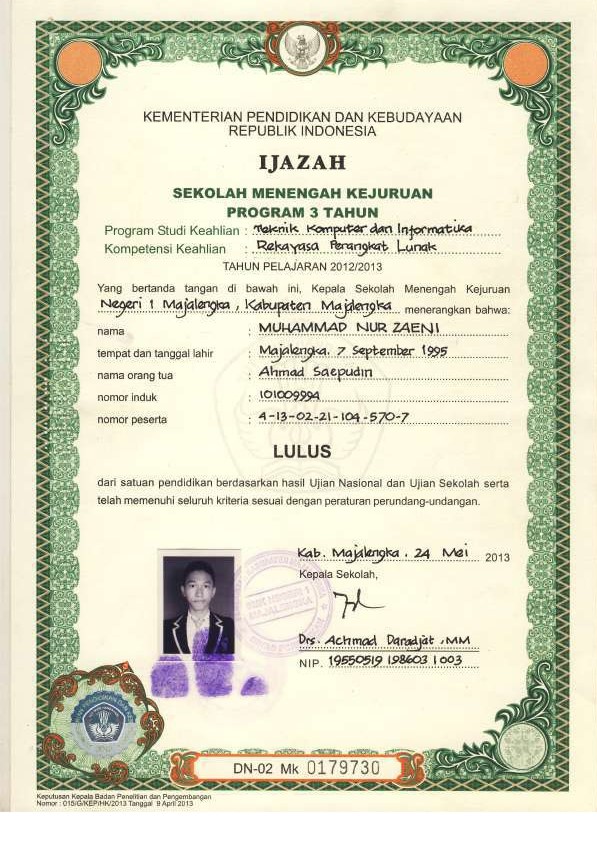 KEMENTERIAN PENDIDIKAN DAN KEBUDAYAAN
REPUBLIK INDONESIA
IJAZAH
SEKOLAH MENENGAH KEJURUAN
PROGRAM 3 TAHUN
Program Studi Keahlian : Teknik Komputer dan Informatika
Kompetensi Keahlian : Rekayasa Perangkat Lunak
TAHUN PELAJARAN 2012/2013
Yang bertanda tangan di bawah ini, Kepala Sekolah Menengah Kejuruan
Negeri 1 Majalengka, Kabupaten Majalengka menerangkan bahwa:
nama : MUHAMMAD NUR ZAENI
tempat dan tanggal lahir : Majalengka, 7 September 1995
nama orang tua : Ahmad Saepudin
nomor induk : 101009994
nomor peserta : 4-13-02-21-104-570-7
LULUS
dari satuan pendidikan berdasarkan hasil Ujian Nasional dan Ujian Sekolah serta
telah memenuhi seluruh kriteria sesuai dengan peraturan perundang-undangan.
Kab. Majalengka, 24 Mei 2013
Kepala Sekolah,
SMK NEGERI 1
MAJALENGKA
Drs. Achmad Daradjat, MM
NIP. 19550519 198603 1 003
DN-02 Mk 0179730
Keputusan Kepala Badan Penelitian dan Pengembangan
Nomor : 015/G/KEP/HK/2013 Tanggal 9 April 2013